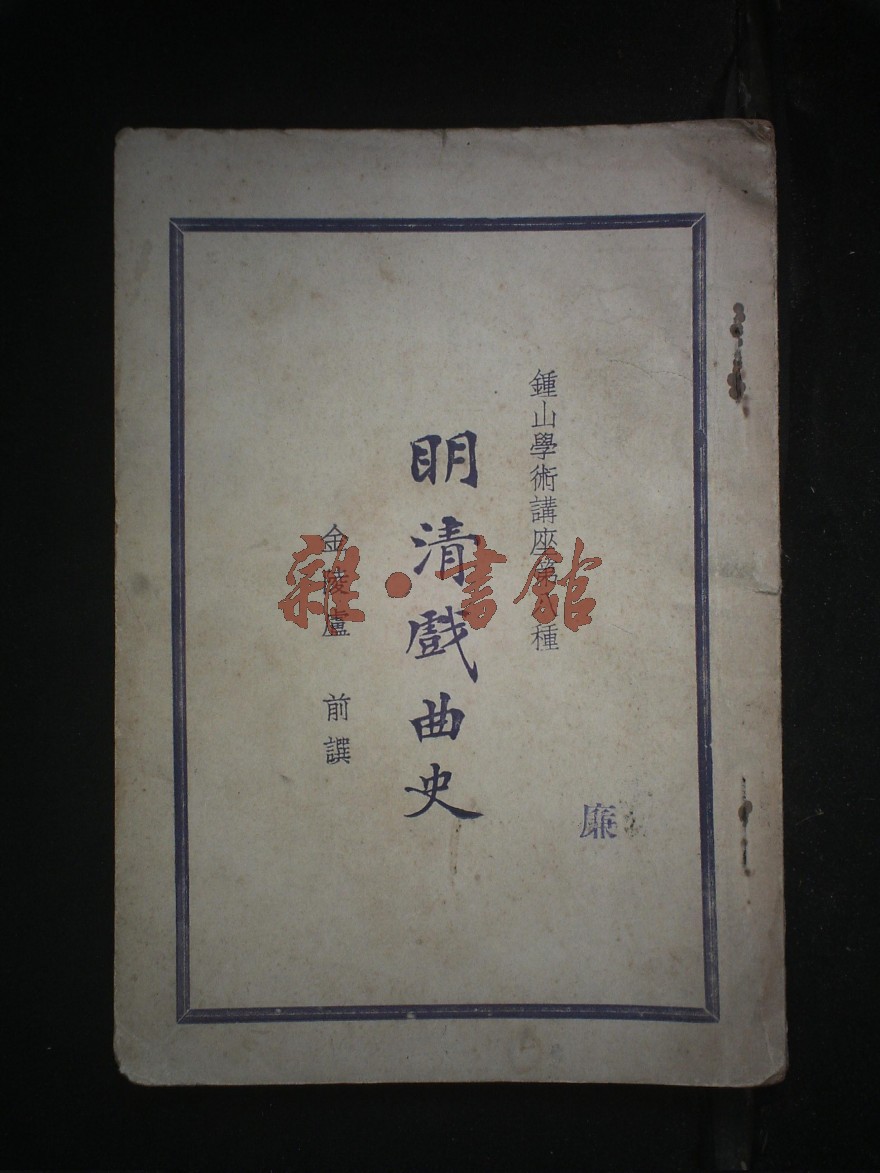 鍾山學術講座第 種
明清戲曲史
金陵盧 前譔
廉
雜·書館